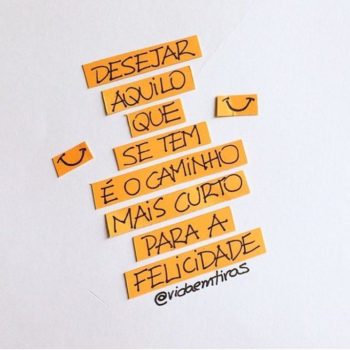 DESEJAR
AQUILO
QUE
SE TEM
É O CAMINHO
MAIS CURTO
PARA A
FELICIDADE
@vidaemtiras